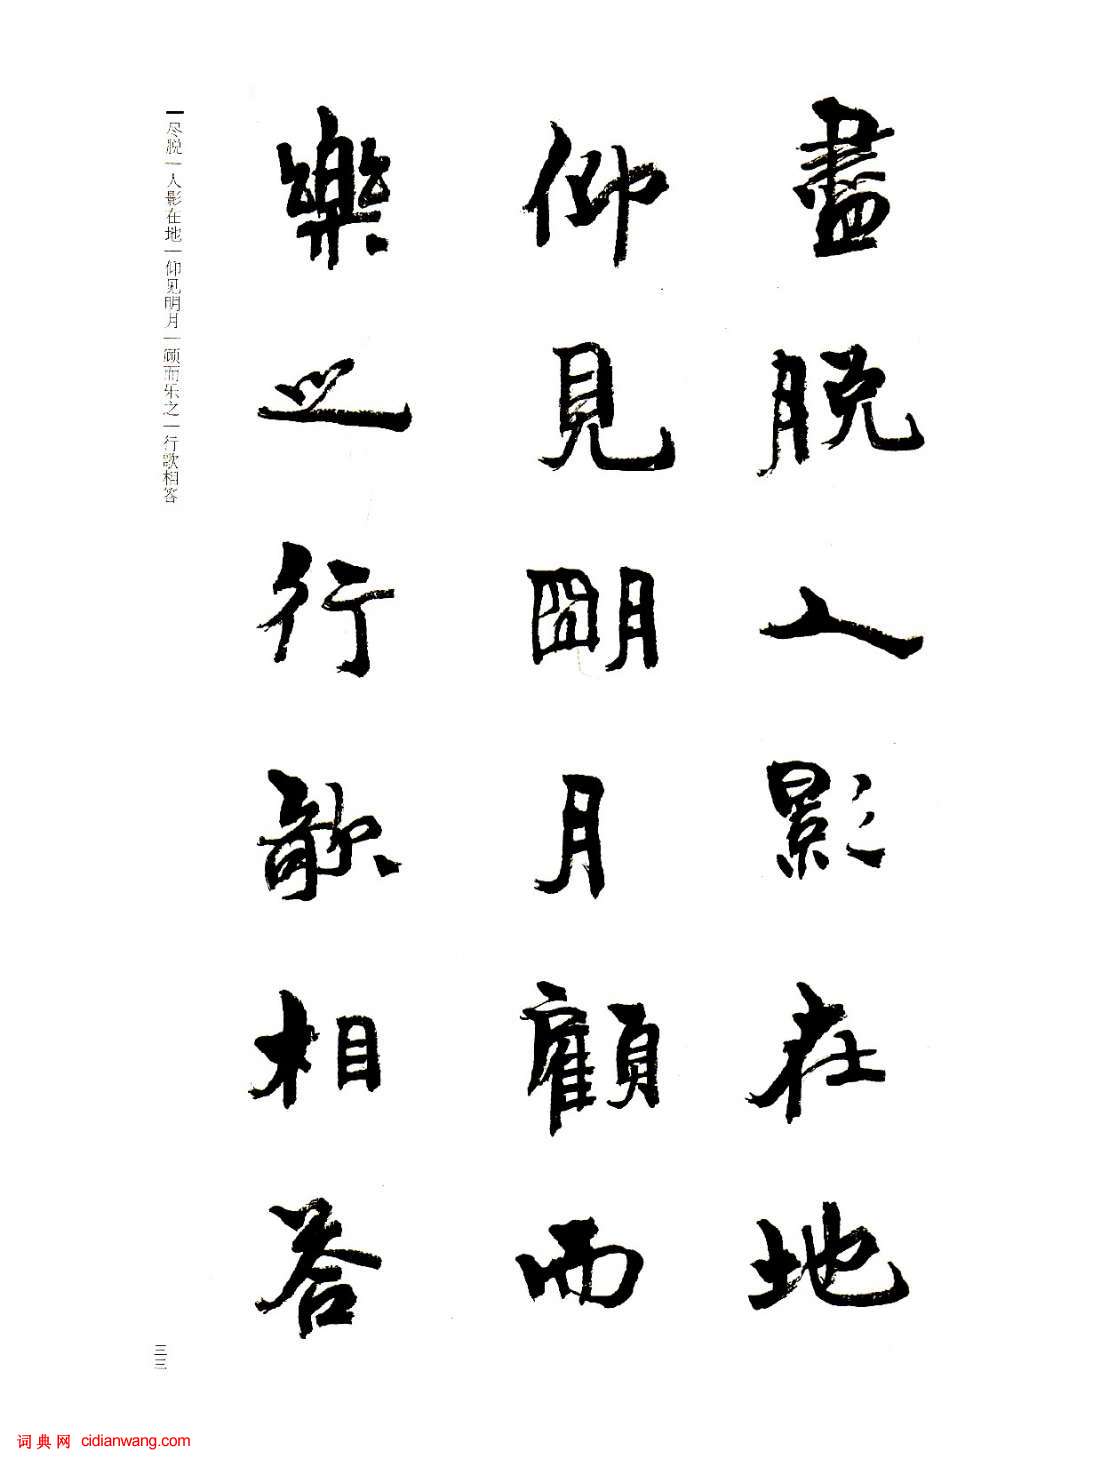 盡脱人影在地
仰見朙月顧而
樂之行歌相荅
尽脱｜人影在地｜仰见明月｜顾而乐之｜行歌相答
三三
词典网 cidianwang.com